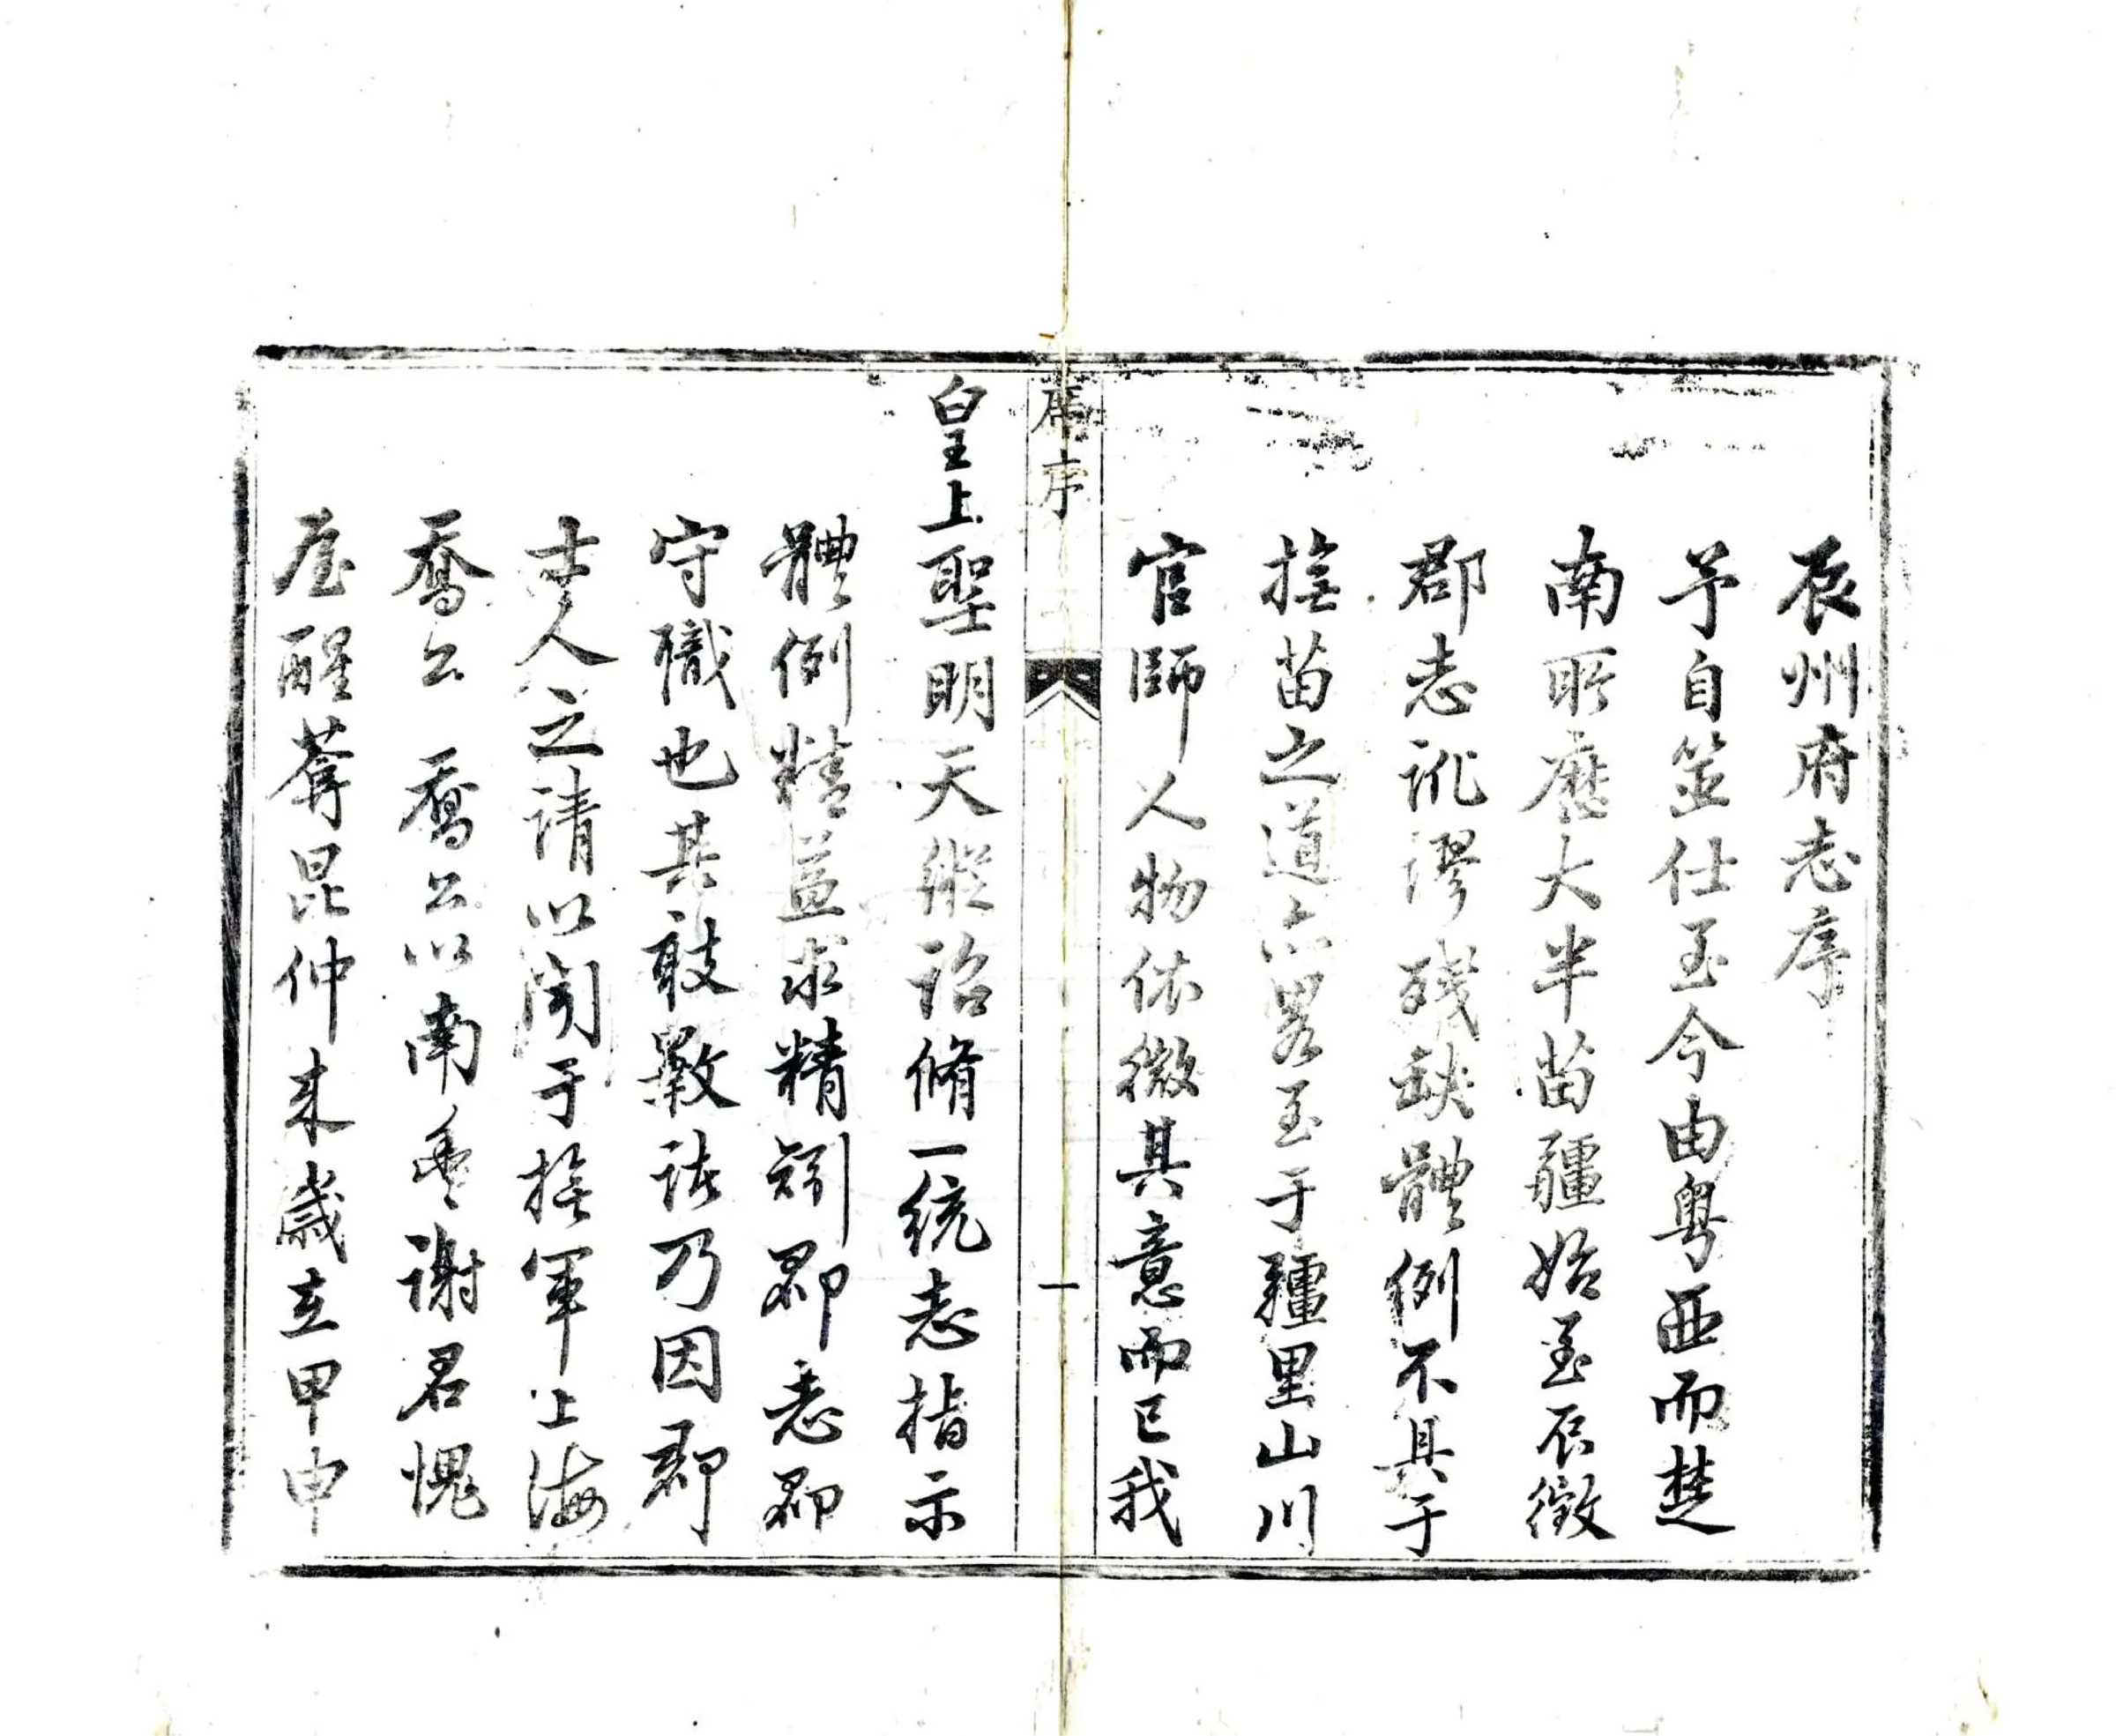 辰州府志序
予自筮仕至今由粤西而楚
南所歷大半苗疆始至辰徵
郡志訛謬殘缺體例不具于
撫苗之道亦畧至于疆里山川
官師人物依微其意而已我
序
一
皇上聖明天縱詔脩一統志指示
體例精益求精矧郡志郡
守職也其敢斁諸乃因郡
士人之請以聞于撫軍上海
喬公喬公以南豐謝君愧
崔醒菴昆仲來歲在甲申